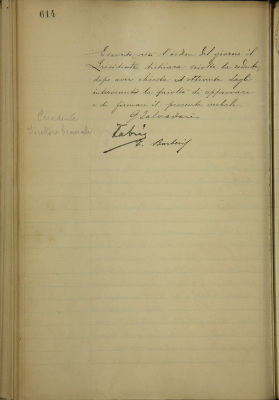 614
Esaurito così l'ordine del giorno il
Presidente dichiara sciolta la seduta,
dopo aver chiesta ed ottenuta dagli
intervenuti la facoltà di approvare
e di firmare il presente verbale.
Presidente
G Salvadori
Fabri